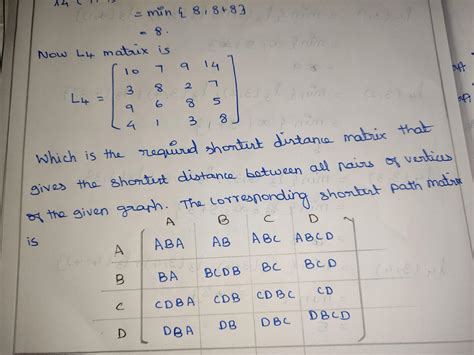 = min { 8, 8+8}
= 8.
Now L4 matrix is
L4 = [ 10 7 9 14
3 8 2 7
9 6 8 5
4 1 3 8 ]
Which is the required shortest distance matrix that
gives the shortest distance between all pairs of vertices
of the given graph. The corresponding shortest path matrix
is
A B C D
A ABA AB ABC ABCD
B BA BCDB BC BCD
C CDBA CDB CDBC CD
D DBA DB DBC DBCD